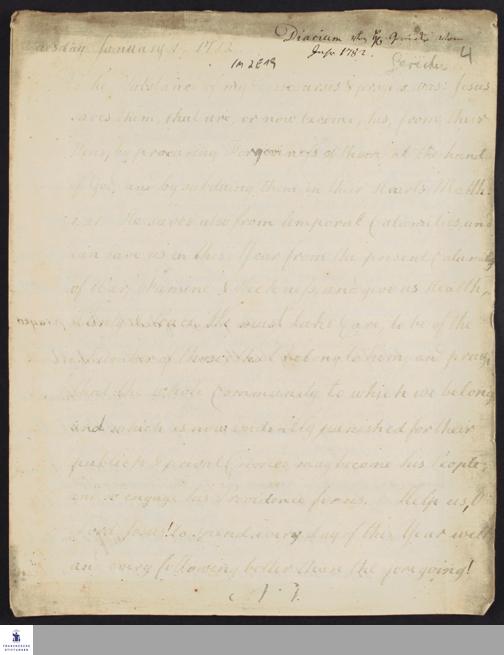 Diarium
January 1. 1782
Jahr 1782.
1M 2E 19
Gericke
4
The Substance of my discourses & prayers was: Jesus
saves them, that are, or now become, his, from their
Sins, by procuring Forgiveness of them at the hand
of God, and by subduing them in their Hearts. Matth.
1. 21. He saves also from temporal Calamities, and
can save us in this Year from the present Calamity
of War, Famine & Sickness, and give us Health,
Plenty & Peace. We must take Care, to be of the
Number of those that belong to him, and pray,
that the whole Community to which we belong
and which is now evidently punished for their
publick & private Crimes may become his People,
and so engage his Providence for us. Help us, O
Lord Jesus! to spend every day of this Year well
and every following better than the foregoing!
FRANCKESCHE
STIFTUNGEN